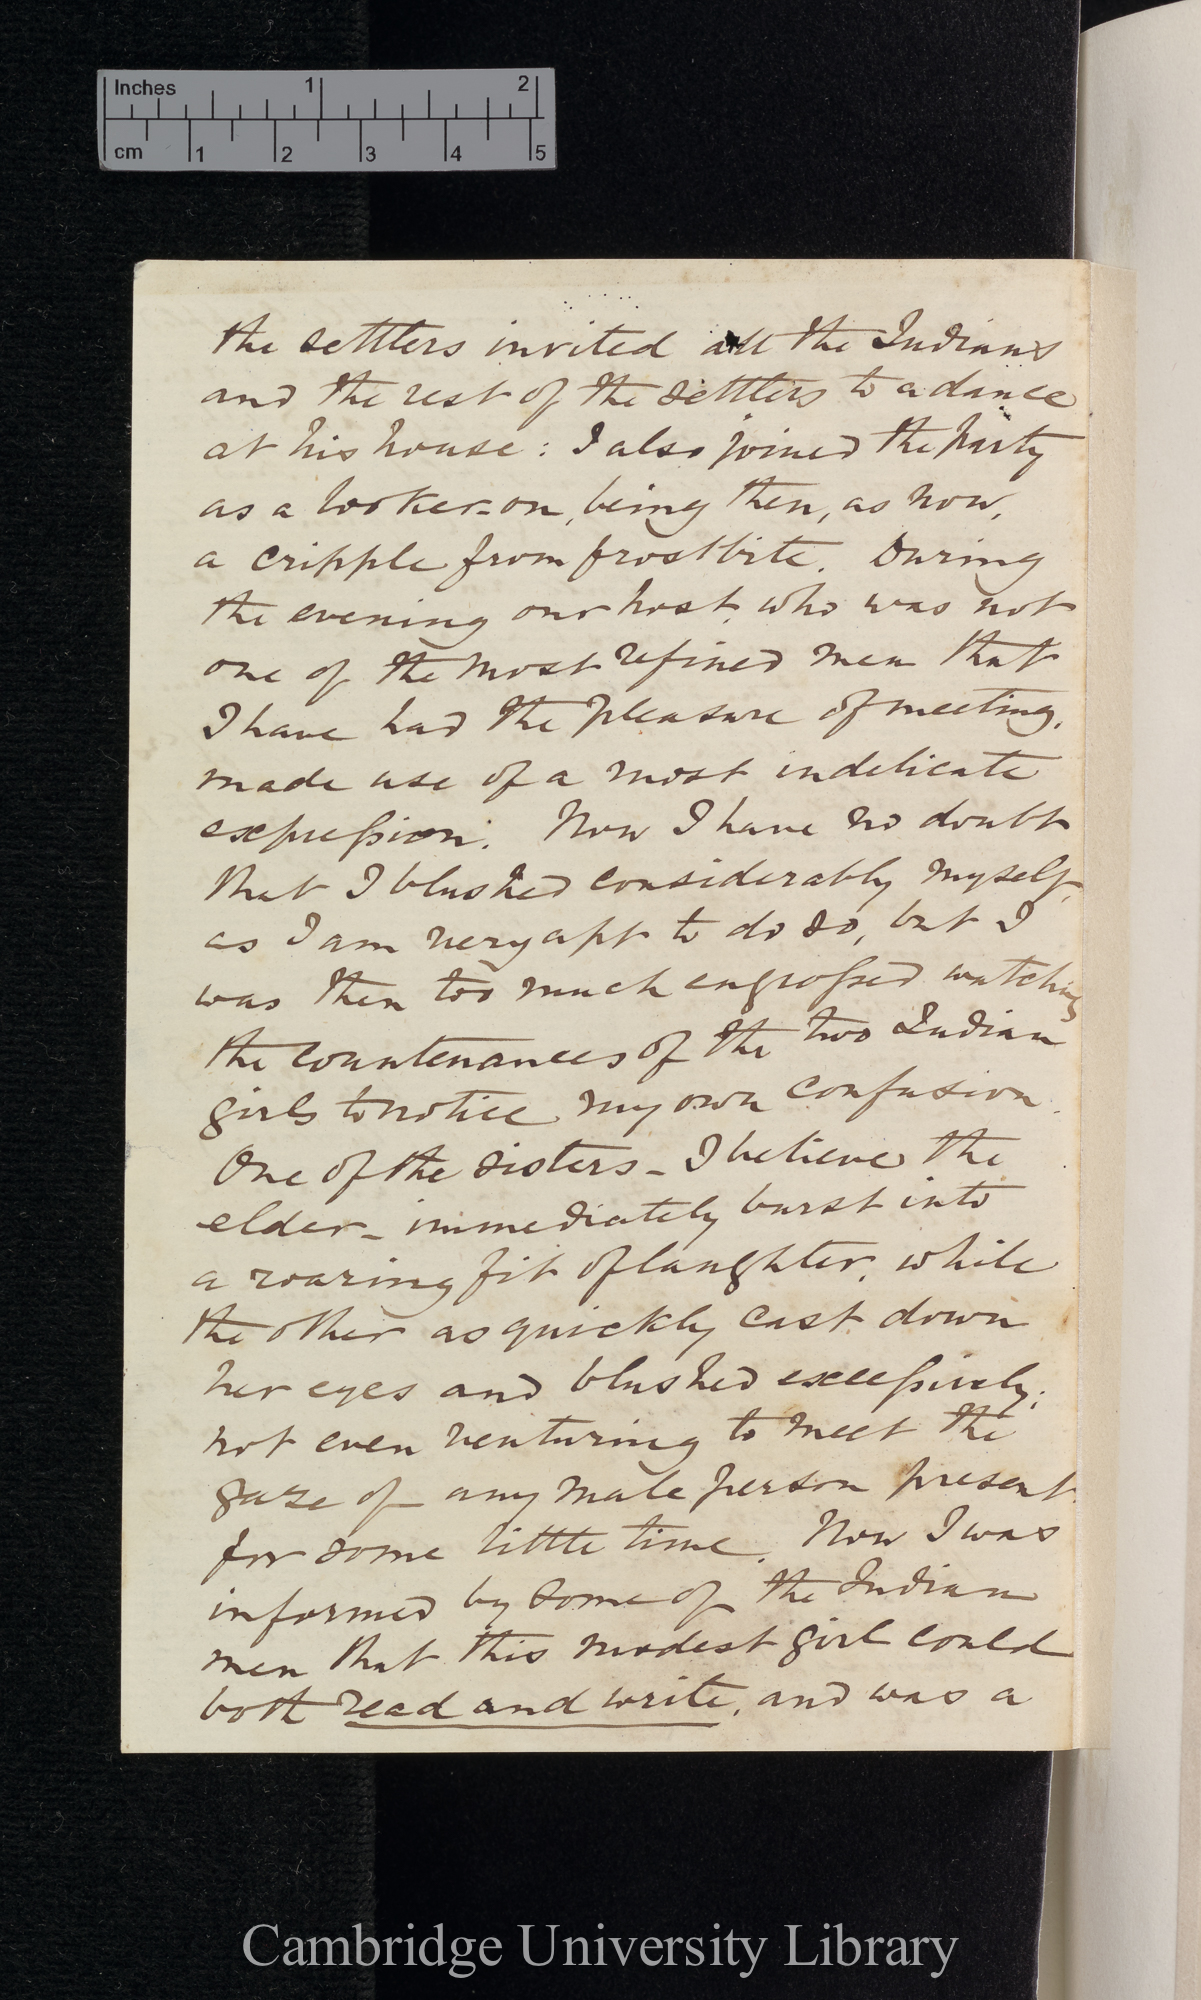 Inches 1 2
cm 1 2 3 4 5
the settlers invited all the Indians
and the rest of the settlers to a dance
at his house: I also joined the party
as a looker-on, being then, as now,
a cripple from frostbite. During
the evening our host, who was not
one of the most refined men that
I have had the pleasure of meeting,
made use of a most indelicate
expression. Now I have no doubt
that I blushed considerably myself,
as I am very apt to do so, but I
was then too much engrossed watching
the countenances of the two Indian
girls to notice my own confusion.
One of the sisters - I believe the
elder - immediately burst into
a roaring fit of laughter, while
the other as quickly cast down
her eyes and blushed excessively;
not even venturing to meet the
gaze of any male person present
for some little time. Now I was
informed by some of the Indian
men that this modest girl could
both read and write, and was a
Cambridge University Library